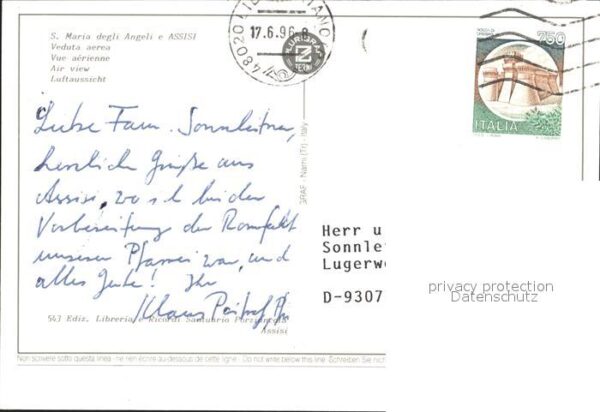 S. Maria degli Angeli e ASSISI
Veduta aerea
Vue aérienne
Air view
Luftaussicht
17.6.96
48020
750
ITALIA
Liebe Fam. Sonnleitner,
herzliche Grüße aus
Assisi, wo ich bei der
Vorbereitung der Romfahrt
unserer Pfarrei war, und
alles Gute! Ihr
Klaus
543 Ediz. Libreria e Ricordi Santuario Porziuncola
Assisi
GRAF - Narni (Tr) - Italy
Herr u
Sonnle
Lugerw
D-9307
privacy protection
Datenschutz
Non scrivere sotto questa linea - ne rien écrire au-dessous de cette ligne - Do not write below this line. Schreiben Sie nich